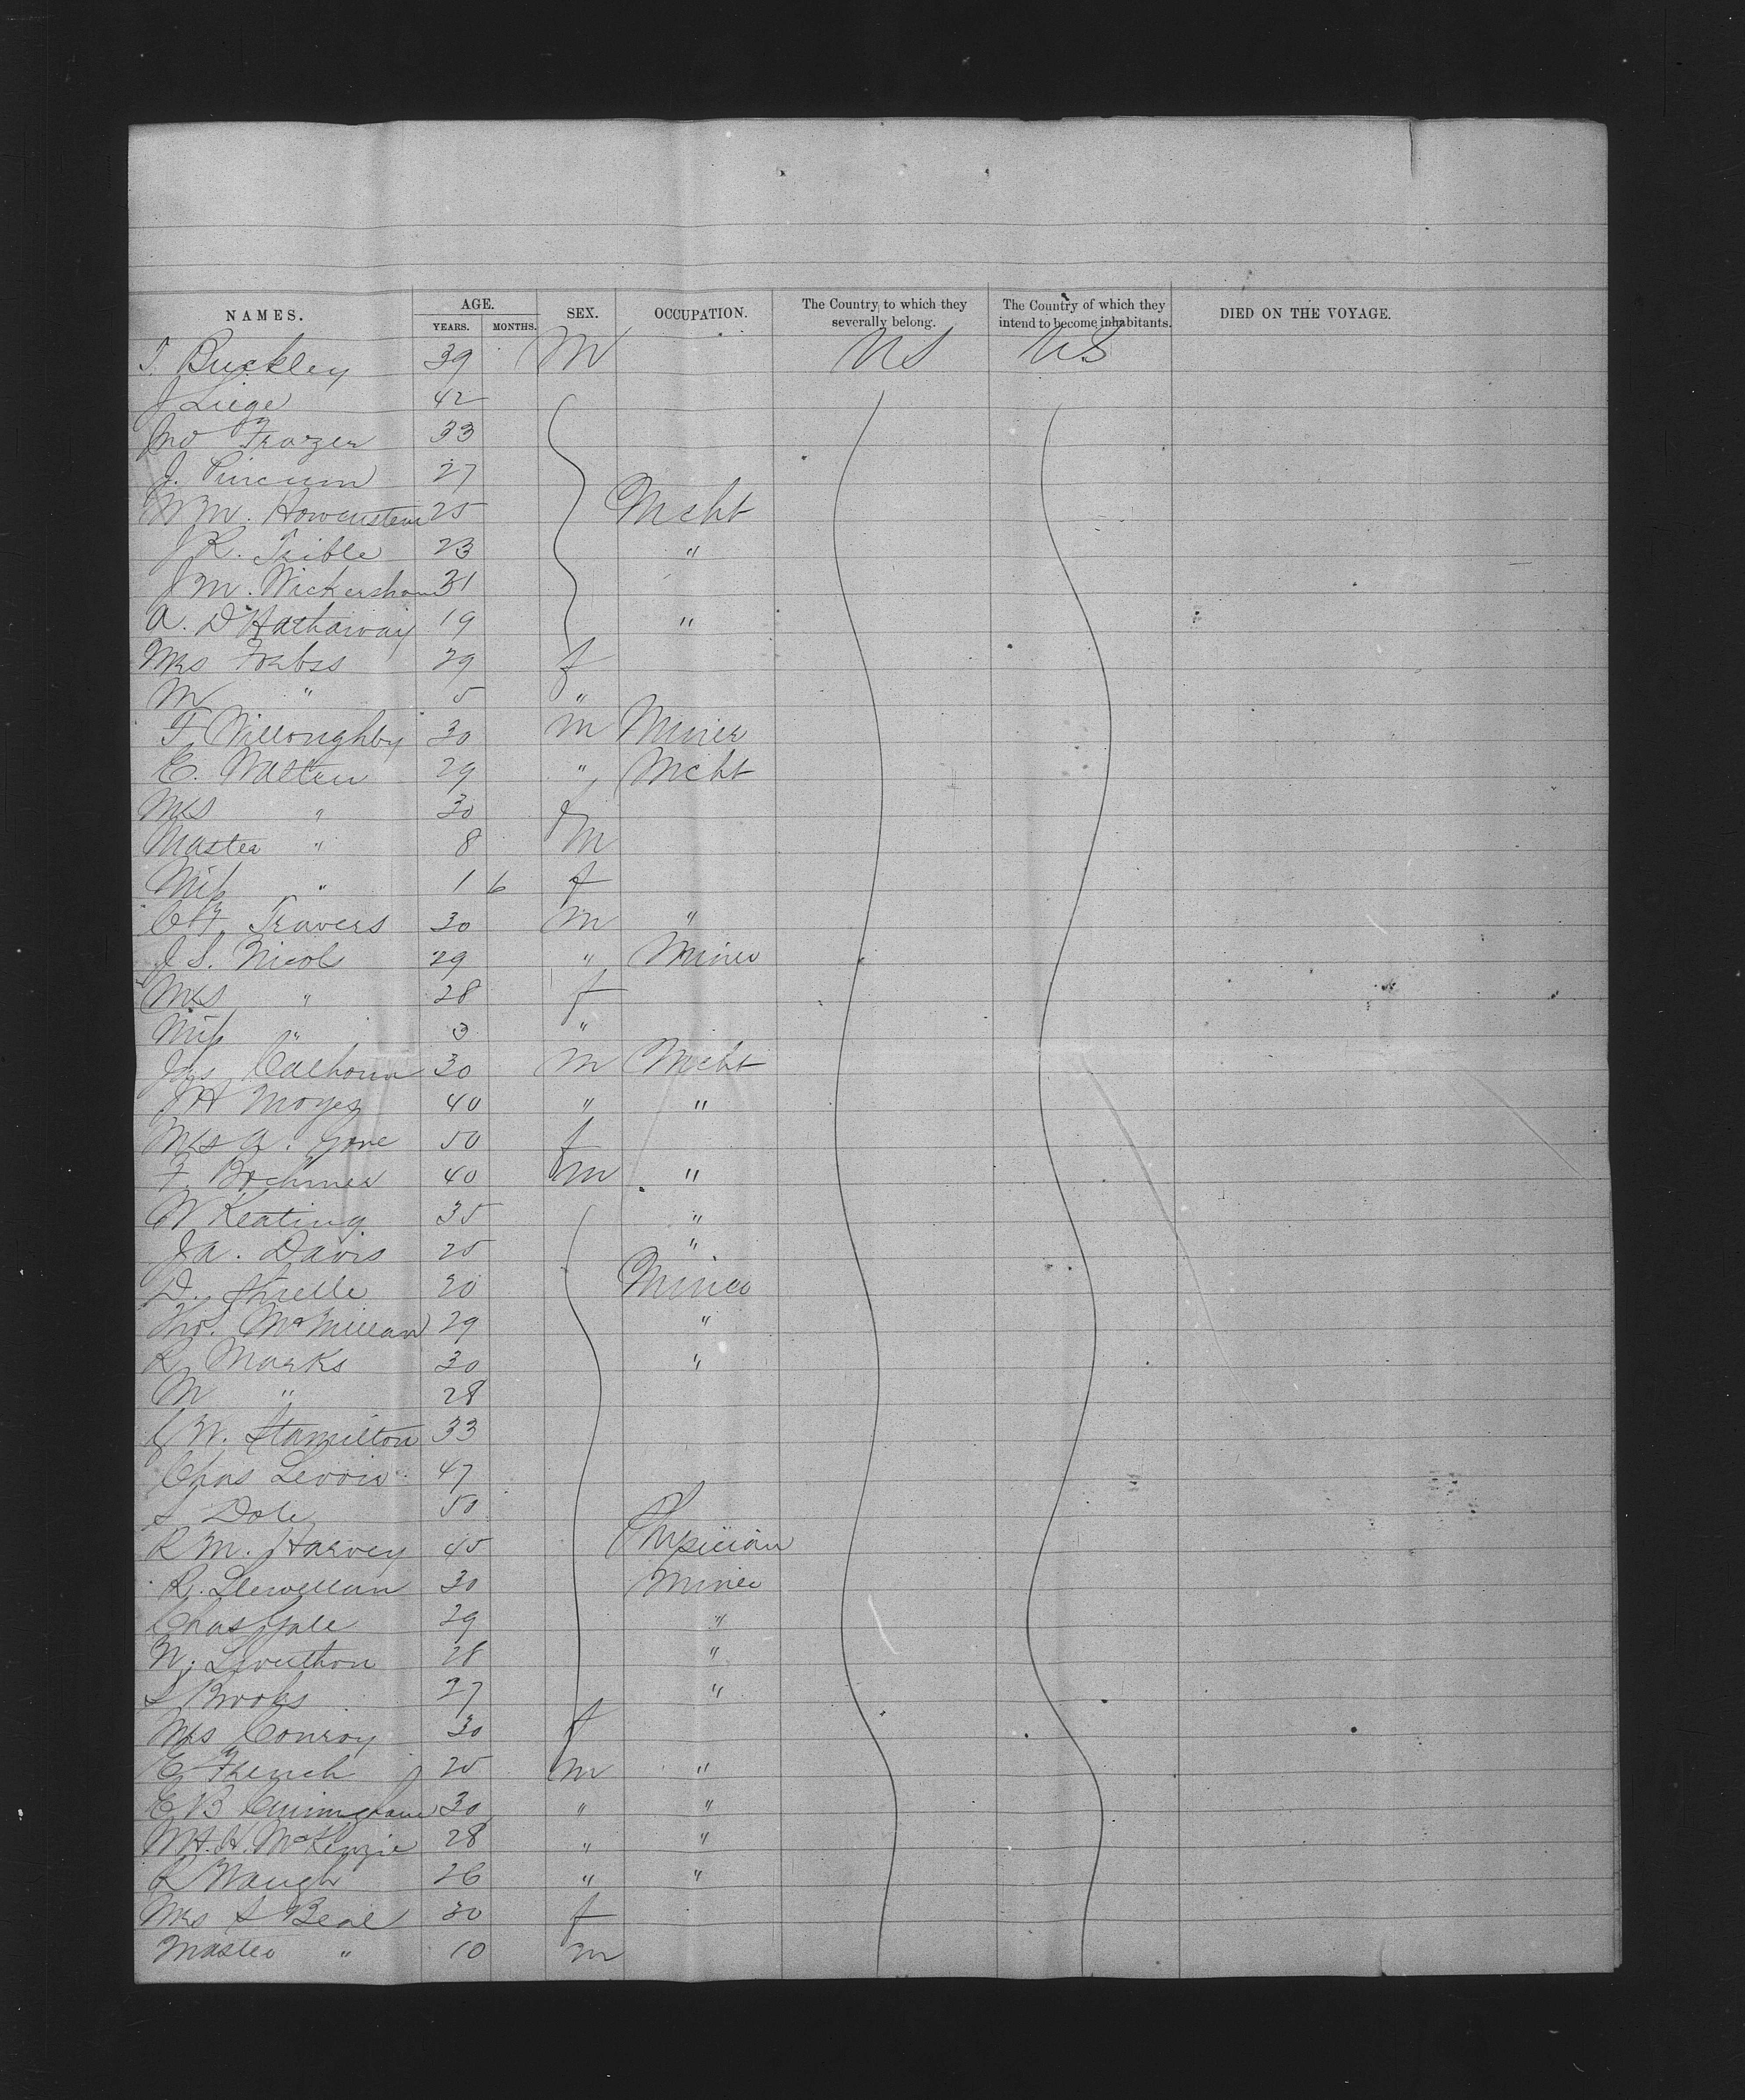 NAMES. AGE. YEARS. MONTHS. SEX. OCCUPATION. The Country to which they severally belong. The Country of which they intend to become inhabitants. DIED ON THE VOYAGE.
T. Buckley 39 M US US
J Liege 42
Jno Frazer 33
J. 27
W M. Howenstein 25 Mcht
J R. Trible 23 "
J M. Wickersham 31
A. D Hathaway 19 "
Mrs Forbss 29 f
M " 5 "
F Willoughby 30 m Miner
E. Walten 29 " Mcht
Mrs " 30 f
Master " 8 M
Miss " 1 6 f
Travers 30 m "
J S. Nicols 29 " Miner
Mrs " 28 f
Miss " 3 "
Jas Calhoun 30 m Mcht
J H Moyes 40 " "
Mrs A. Gove 50 f
F. Bochmer 40 m "
W Keating 35 "
J A. Davis 25 "
D. 20 Miner
Thos. McMillan 29 "
R Marks 30 "
M " 28
W. Hamilton 33
Chas 47
S Dole 50
R M. Harvey 45 Physician
R. Llewellan 30 Miner
Chas Gale 29 "
W. 28 "
S Brooks 27 "
Mrs Conroy 30 f
E French 25 m "
E B Cunningham 30 " "
H. McKenzie 28 " "
R Waugh 26 " "
Mrs S Beal 30 f
Master " 10 m